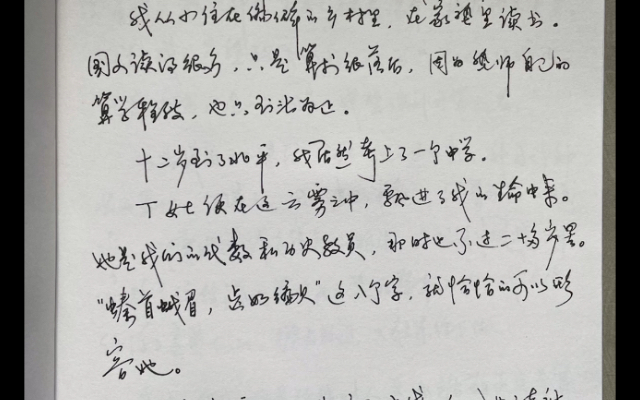 我从小住在偏僻的乡村里，在家塾里读书。
国文读得很多，只是算术很落后，因为塾师自己的
算学程度，也只到此为止。
十二岁到了北平，我居然考上了一个中学。
丁女士便在这云雾之中，飘进了我的生命中来。
她是我们的代数和历史教员，那时也不过二十多岁罢。
“螓首蛾眉，齿如编贝”这八个字，就恰恰的可以形
容她。